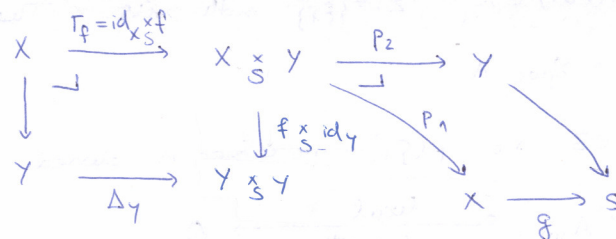 Γ_f = id_X ×_S f
X → X ×_S Y p_2 → Y
f ×_S id_Y p_1
Y → Y ×_S Y
Δ_Y X → S
g